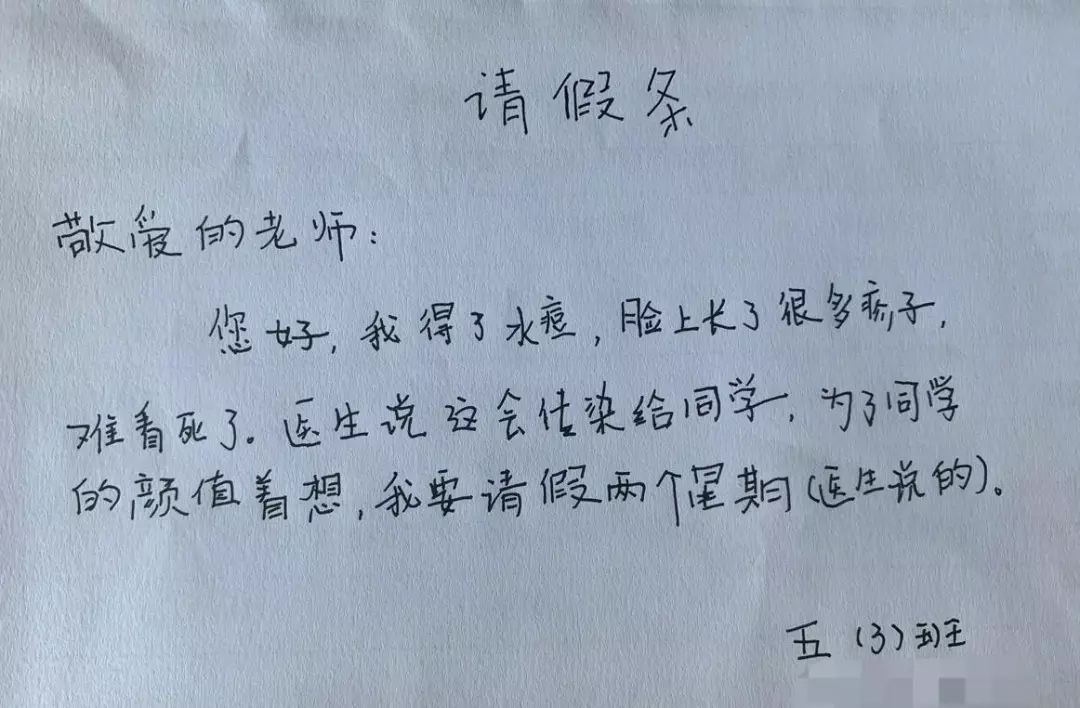 请假条
敬爱的老师：
您好，我得了水痘，脸上长了很多痘子，
难看死了。医生说这会传染给同学，为了同学
的颜值着想，我要请假两个星期（医生说的）。
五（3）班